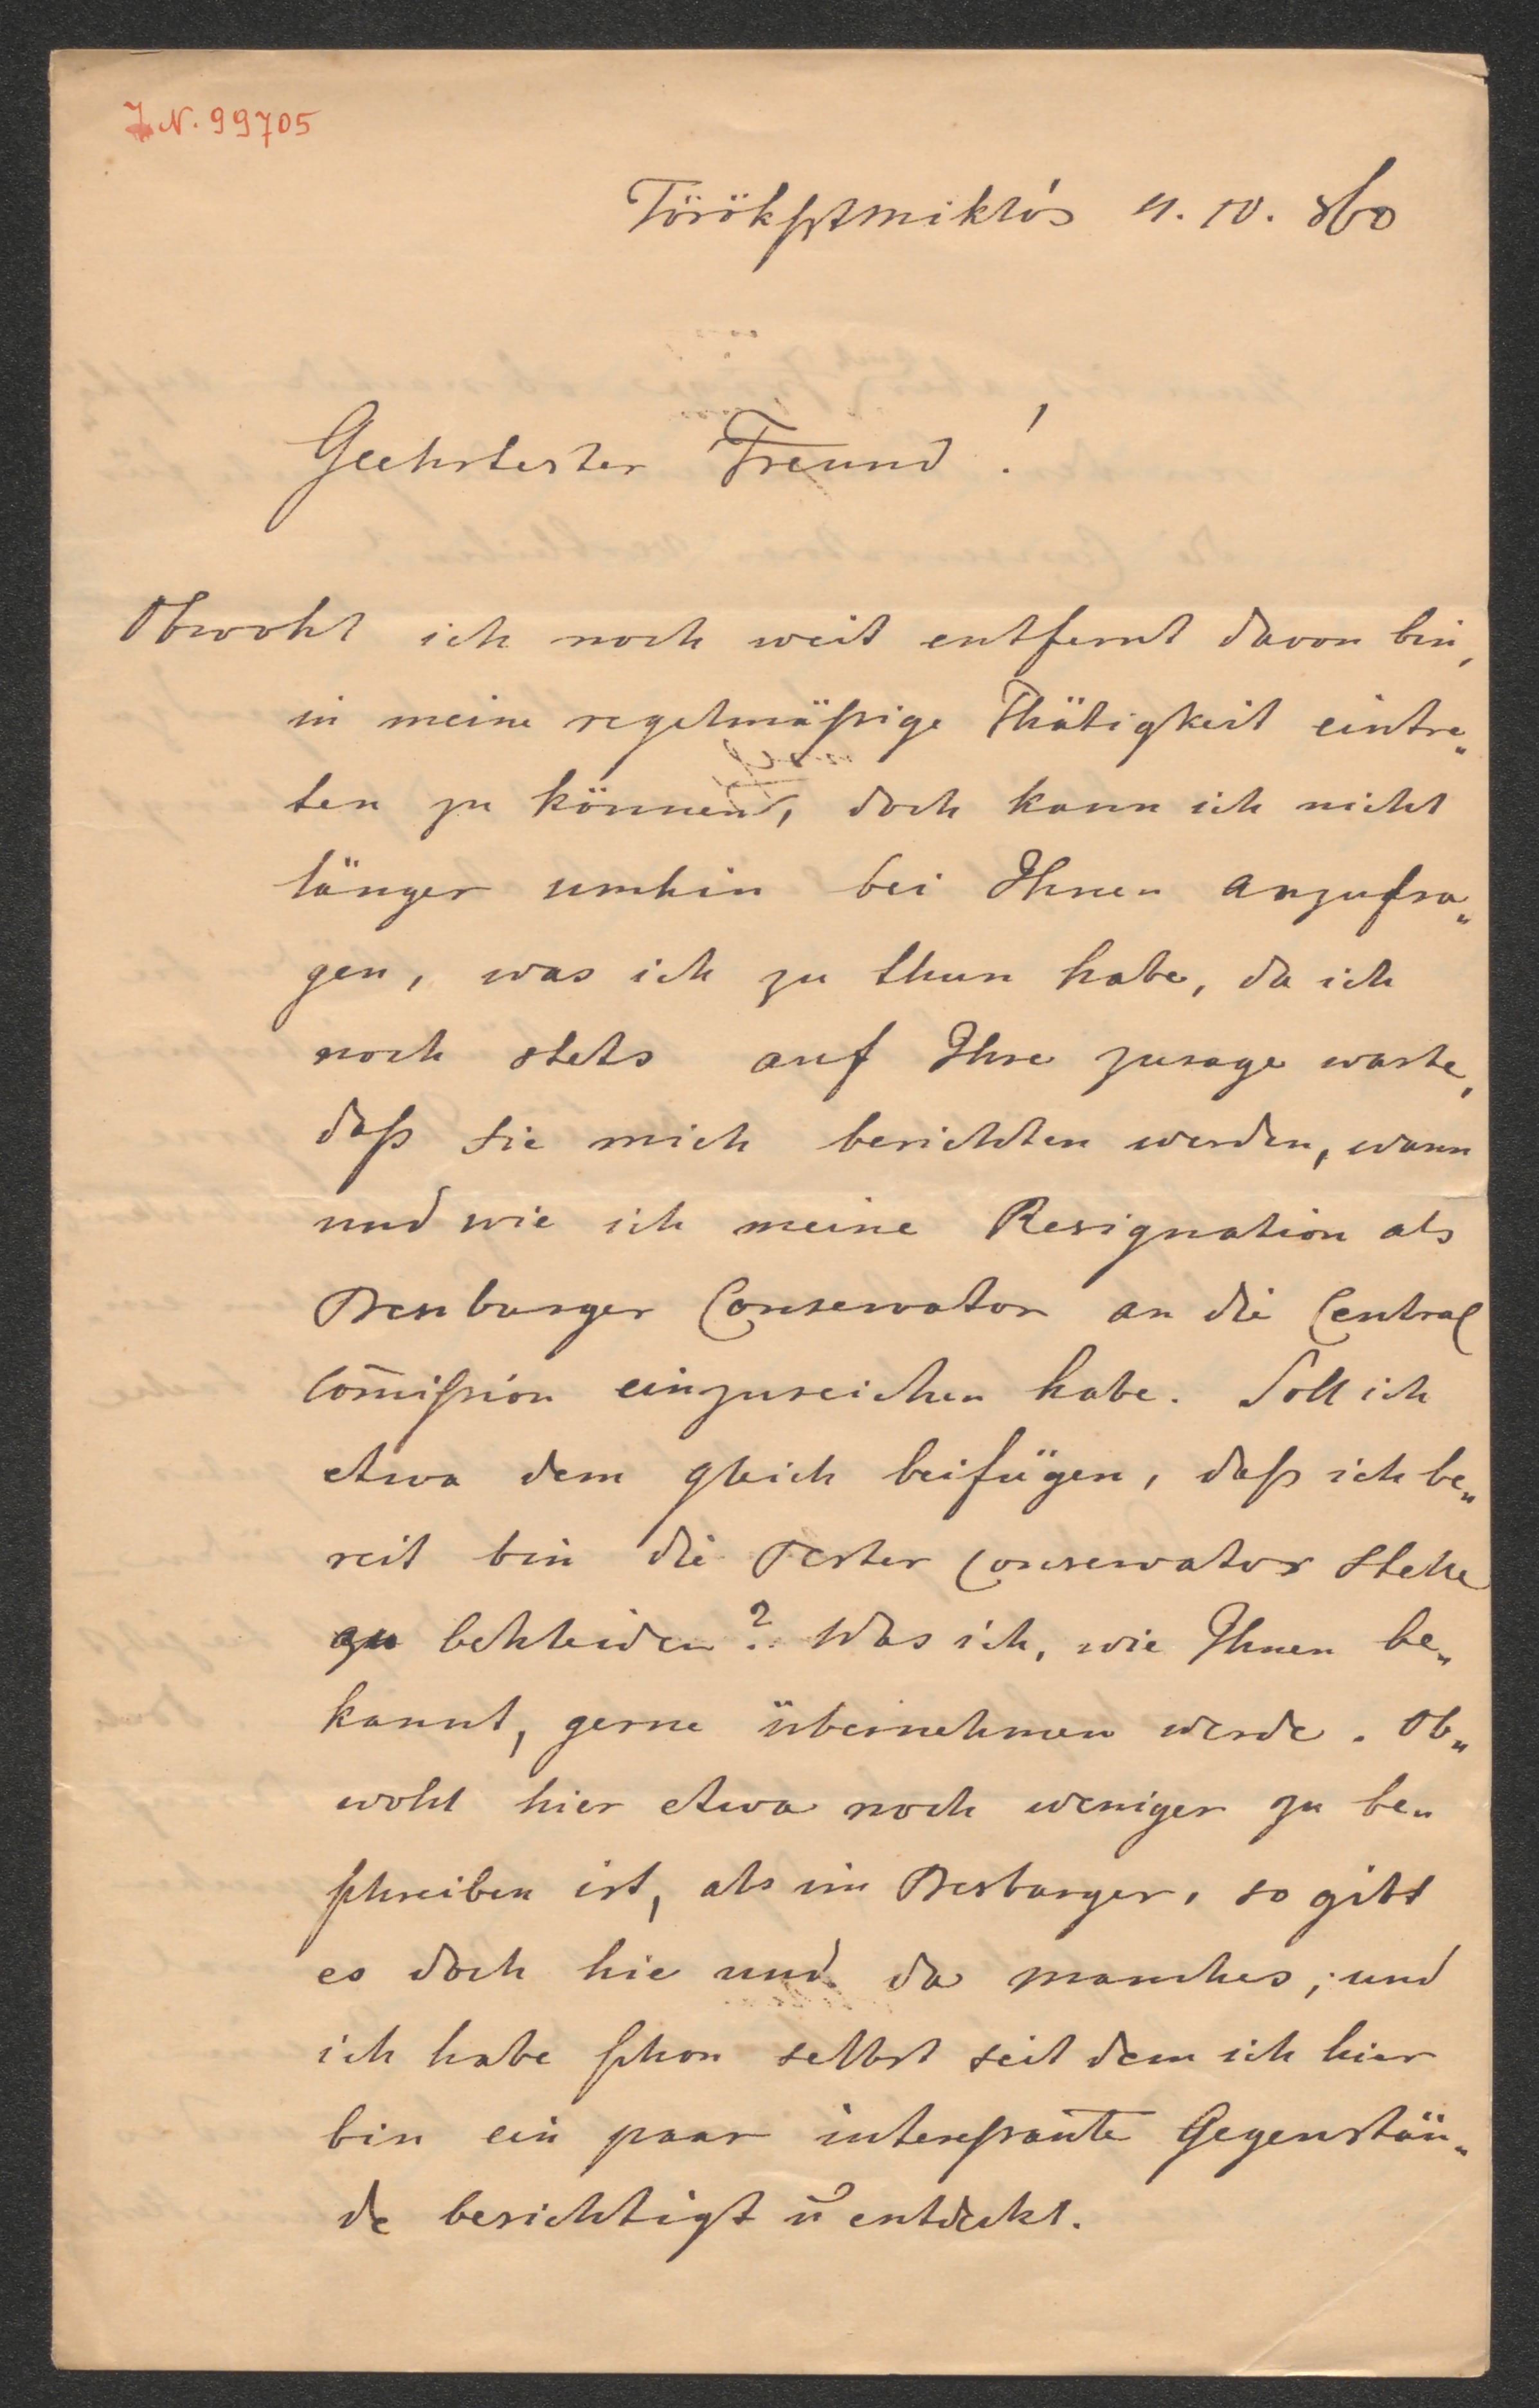 I.N. 99705
Töröksztmiklós 4. 10. 860
Geehrtester Freund!
Obwohl ich noch weit entfernt davon bin,
in meine regelmäßige Thätigkeit eintre„
ten zu können, doch kann ich nicht
länger umhin bei Ihnen anzufra„
gen, was ich zu thun habe, da ich
noch stets auf Ihre zusage warte,
daß sie mich berichten werden, wann
und wie ich meine Resignation als
Presburger Conservator an die Central
Com̄ißion einzureichen habe. Soll ich
etwa dem gleich beifügen, daß ich be„
reit bin die Pester Conservator Stelle
zu bekleiden? Was ich, wie Ihnen be„
kannt, gerne übernehmen werde. Ob„
wohl hier etwa noch weniger zu be„
schreiben ist, als im Presburger, so gibt
es doch hie und da manches; und
ich habe schon selbst seit dem ich hier
bin ein paar intereßante Gegenstän„
de besichtigt ū entdekt.